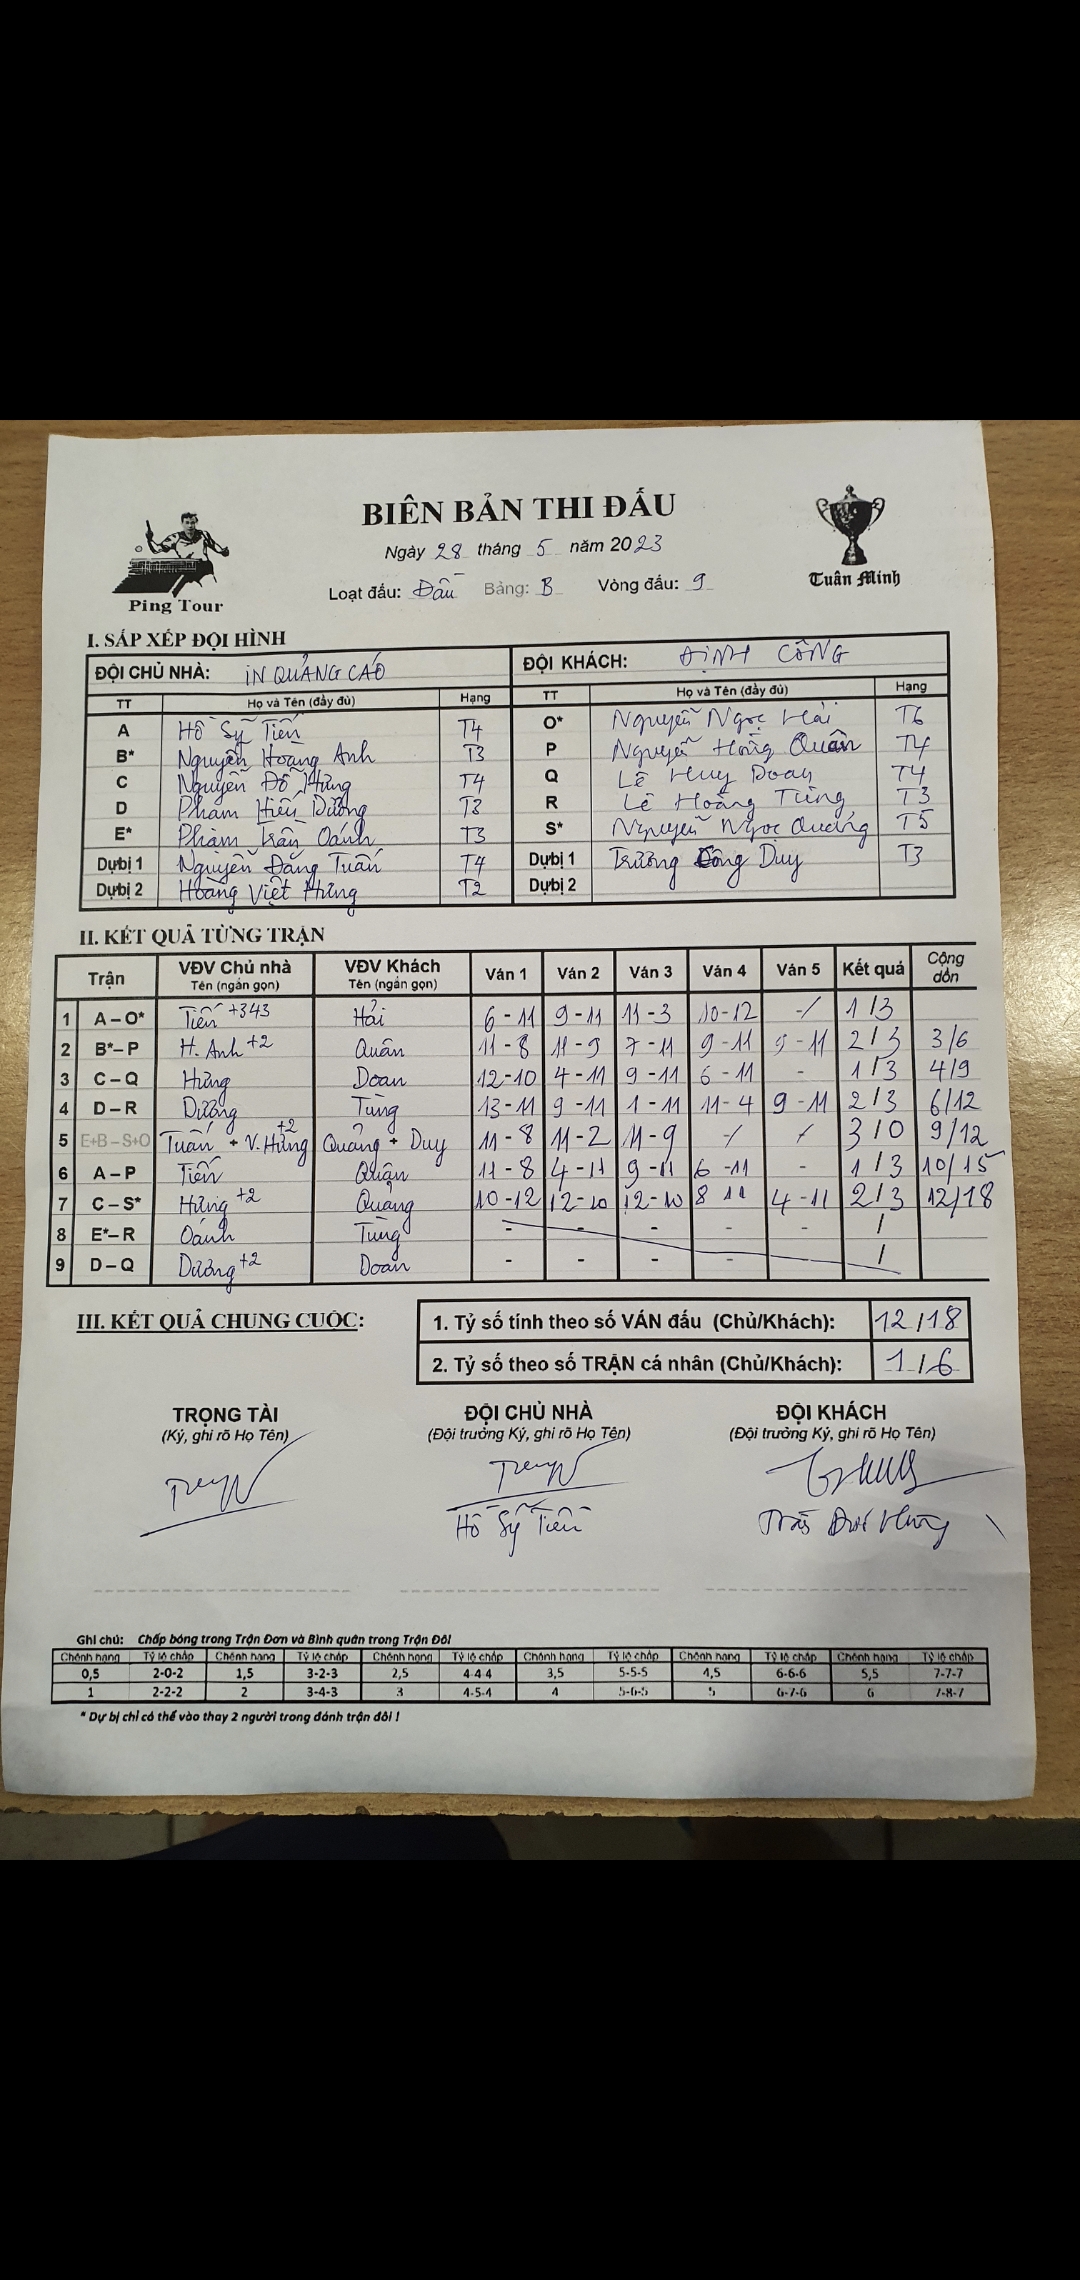 BIÊN BẢN THI ĐẤU
Ngày 28 tháng 5 năm 2023
Loạt đấu: Đầu Bảng: B Vòng đấu: 9
Ping Tour
Tuấn Minh
I. SẮP XẾP ĐỘI HÌNH
ĐỘI CHỦ NHÀ: IN QUẢNG CÁO ĐỘI KHÁCH: ĐỊNH CÔNG
TT Họ và Tên (đầy đủ) Hạng TT Họ và Tên (đầy đủ) Hạng
A Hồ Sỹ Tiến T4 O* Nguyễn Ngọc Hải T6
B* Nguyễn Hoàng Anh T3 P Nguyễn Hồng Quân T4
C Nguyễn Đỗ Hùng T4 Q Lê Huy Doan T4
D Phạm Hiếu Dương T3 R Lê Hoàng Tùng T3
E* Phạm Trần Oánh T3 S* Nguyễn Ngọc Quảng T5
Dự bị 1 Nguyễn Đăng Tuấn T4 Dự bị 1 Trương Công Duy T3
Dự bị 2 Hoàng Việt Hưng T2 Dự bị 2
II. KẾT QUẢ TỪNG TRẬN
Trận VĐV Chủ nhà Tên (ngắn gọn) VĐV Khách Tên (ngắn gọn) Ván 1 Ván 2 Ván 3 Ván 4 Ván 5 Kết quả Cộng dồn
1 A – O* Tiến +343 Hải 6 - 11 9 - 11 11 - 3 10 - 12 - 1 / 3
2 B* – P H. Anh +2 Quân 11 - 8 11 - 9 7 - 11 9 - 11 9 - 11 2 / 3 3/6
3 C – Q Hùng Doan 12 - 10 4 - 11 9 - 11 6 - 11 - 1 / 3 4/9
4 D – R Dương Tùng 13 - 11 9 - 11 1 - 11 11 - 4 9 - 11 2 / 3 6/12
5 E+B – S+O Tuấn + V. Hưng +2 Quảng + Duy 11 - 8 11 - 2 11 - 9 - - 3 / 0 9/12
6 A – P Tiến Quân 11 - 8 4 - 11 9 - 11 6 - 11 - 1 / 3 10/15
7 C – S* Hùng +2 Quảng 10 - 12 12 - 10 12 - 10 8 11 4 - 11 2 / 3 12/18
8 E* – R Oánh Tùng - - - - - /
9 D – Q Dương +2 Doan - - - - - /
III. KẾT QUẢ CHUNG CUỘC:
1. Tỷ số tính theo số VÁN đấu (Chủ/Khách): 12 / 18
2. Tỷ số theo số TRẬN cá nhân (Chủ/Khách): 1 / 6
TRỌNG TÀI ĐỘI CHỦ NHÀ ĐỘI KHÁCH
(Ký, ghi rõ Họ Tên) (Đội trưởng Ký, ghi rõ Họ Tên) (Đội trưởng Ký, ghi rõ Họ Tên)
Hồ Sỹ Tiến
Ghi chú: Chấp bóng trong Trận Đơn và Bình quân trong Trận Đôi
Chênh hạng Tỷ lệ chấp Chênh hạng Tỷ lệ chấp Chênh hạng Tỷ lệ chấp Chênh hạng Tỷ lệ chấp Chênh hạng Tỷ lệ chấp Chênh hạng Tỷ lệ chấp
0,5 2-0-2 1,5 3-2-3 2,5 4-4-4 3,5 5-5-5 4,5 6-6-6 5,5 7-7-7
1 2-2-2 2 3-4-3 3 4-5-4 4 5-6-5 5 6-7-6 6 7-8-7
* Dự bị chỉ có thể vào thay 2 người trong đánh trận đôi !